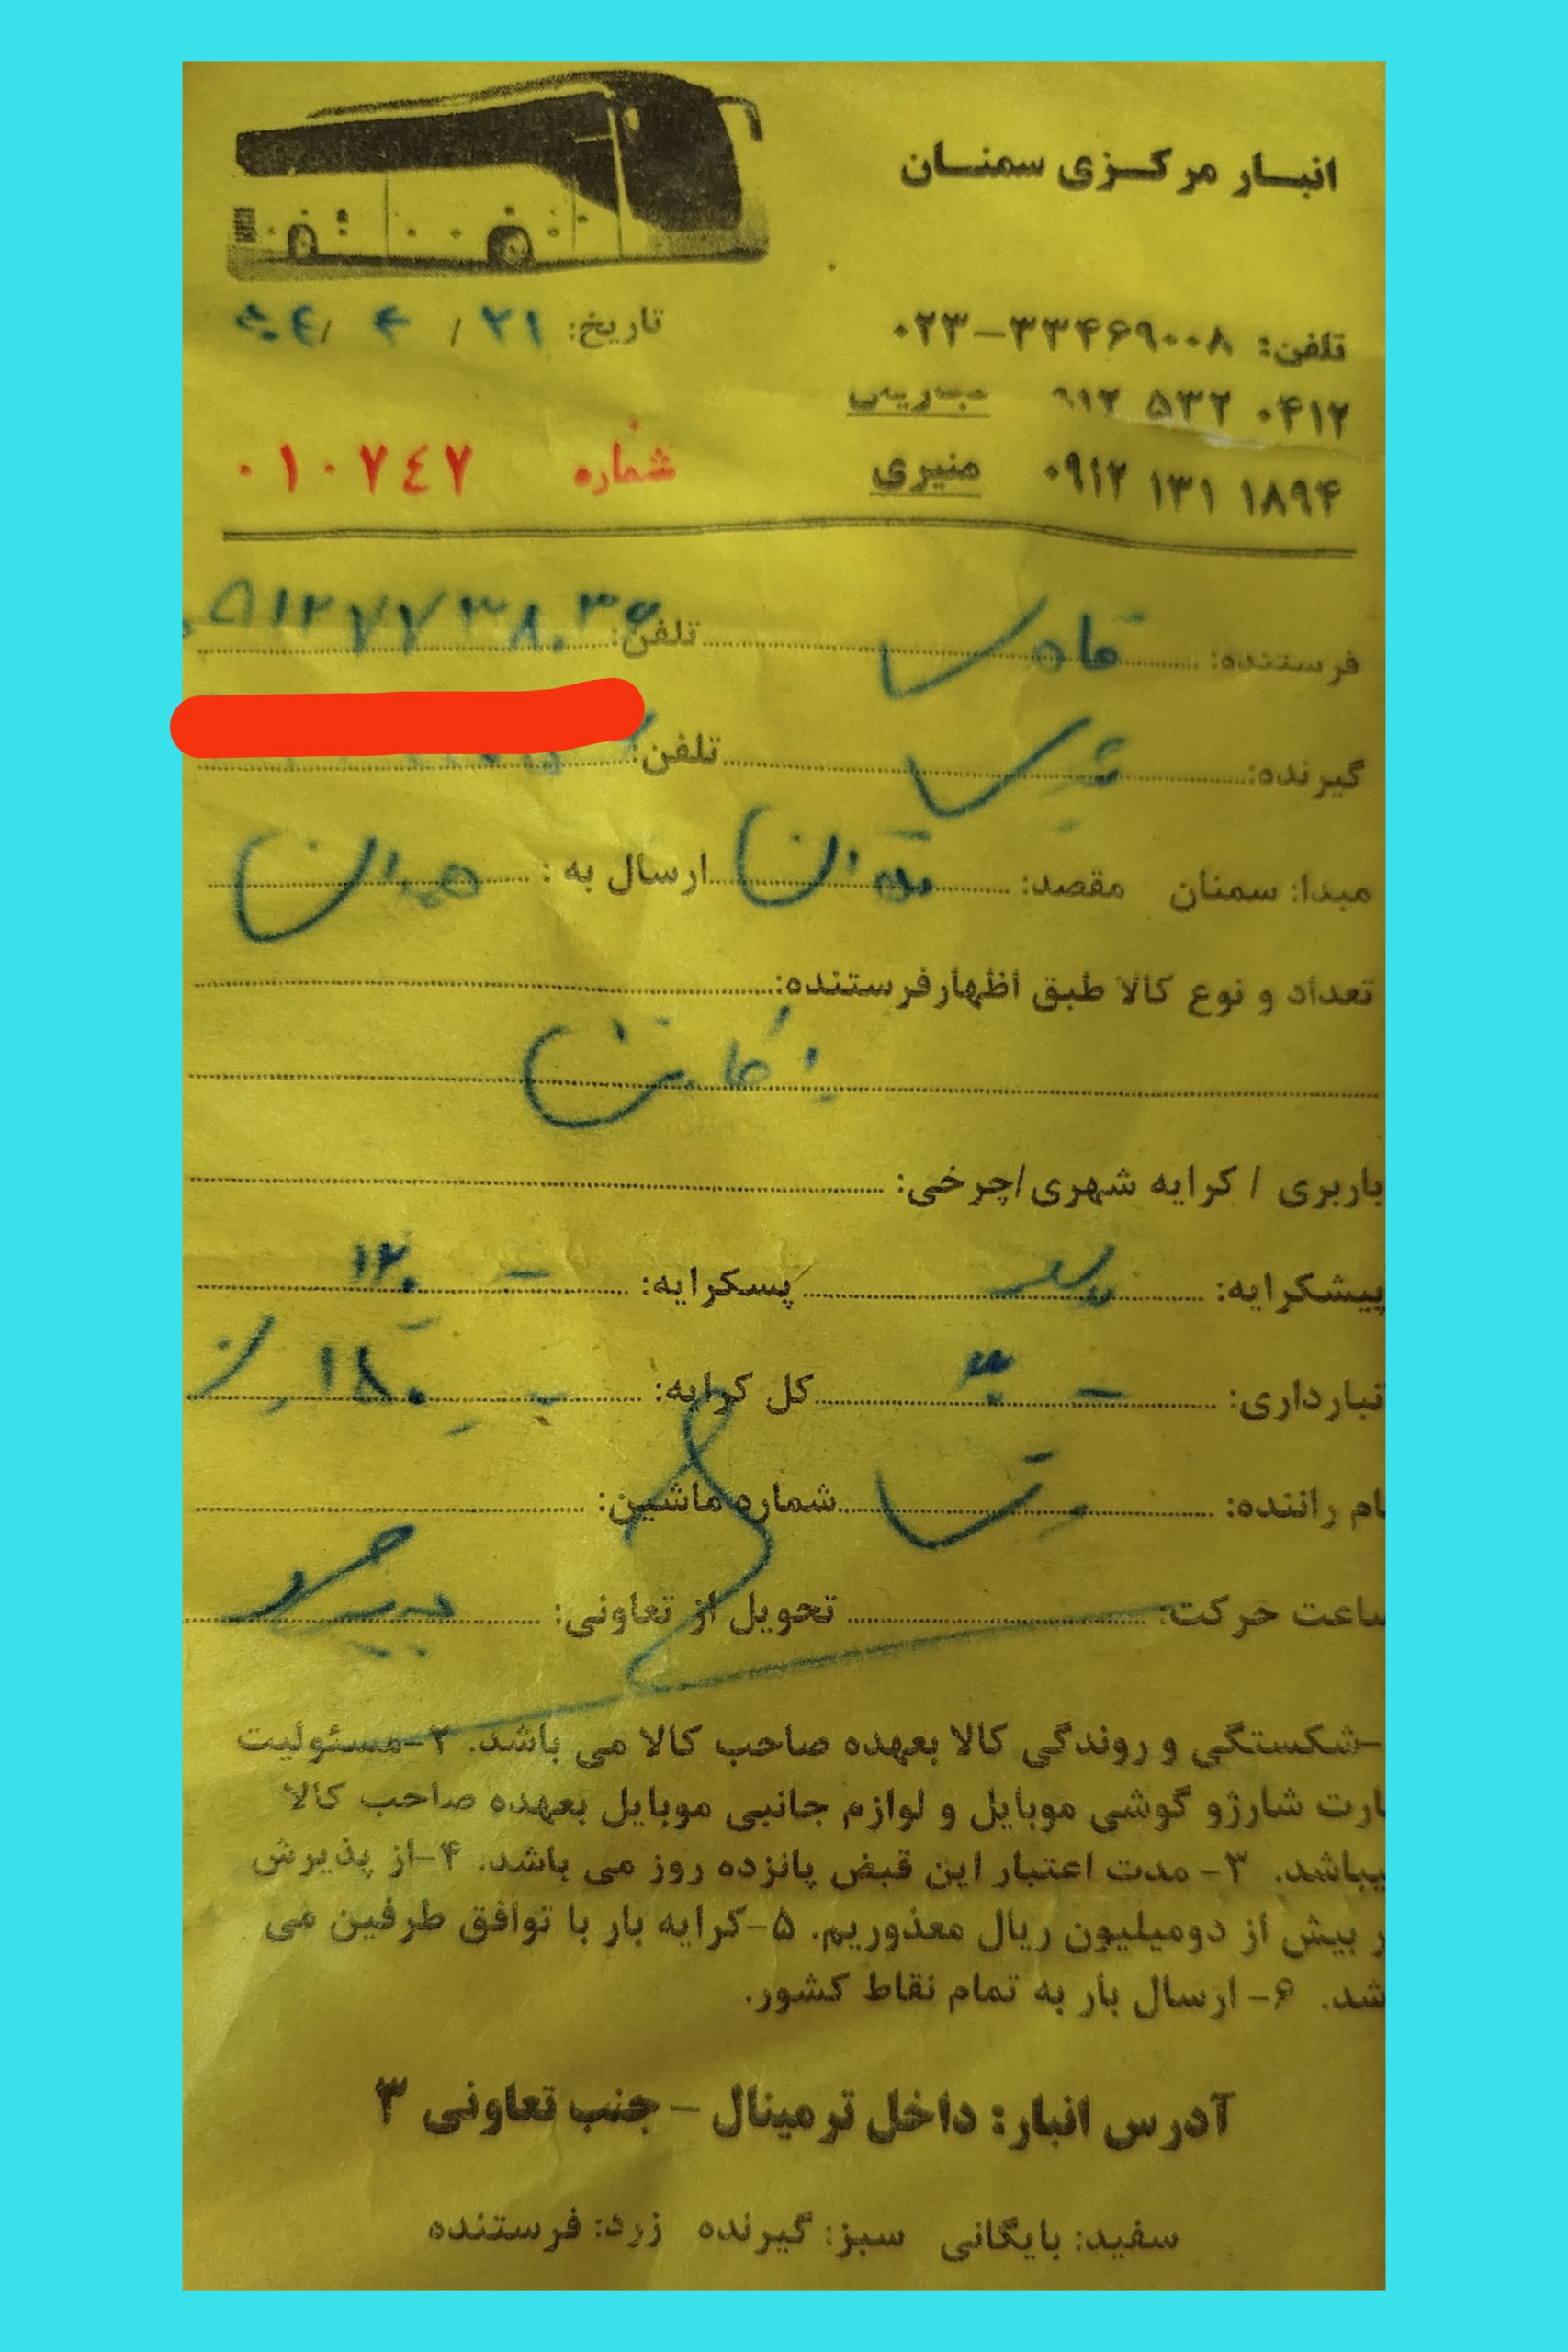 انبار مرکزی سمنان
تلفن: ۰۲۳-۳۳۴۶۹۰۰۸
تاریخ: ۲۱ / ۴ /
۰۴۱۲ ۵۳۲ ۹۱۲
۰۹۱۲ ۱۳۱ ۱۸۹۴ منیری
شماره ۰۱۰۷۴۷
فرستنده: تلفن:
گیرنده: تلفن:
مبدا: سمنان مقصد: تهران ارسال به : همدان
تعداد و نوع کالا طبق اظهارفرستنده:
۱ کارتن
باربری / کرایه شهری/چرخی:
پیشکرایه: پسکرایه: ۱۲۰
نبارداری: ۳۰ کل کرایه: ۱۸۰
ام راننده: شماره ماشین:
ساعت حرکت: تحویل از تعاونی:
-شکستگی و روندگی کالا بعهده صاحب کالا می باشد. ۲-مسئولیت
ارت شارژو گوشی موبایل و لوازم جانبی موبایل بعهده صاحب کالا
یباشد. ۳- مدت اعتبار این قبض پانزده روز می باشد. ۴-از پذیرش
ر بیش از دومیلیون ریال معذوریم. ۵-کرایه بار با توافق طرفین می
شد. ۶- ارسال بار به تمام نقاط کشور.
آدرس انبار: داخل ترمینال - جنب تعاونی ۳
سفید: بایگانی سبز: گیرنده زرد: فرستنده